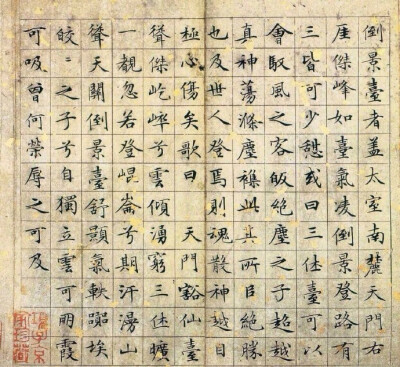 倒景臺者蓋太室南麓天門右
厓傑峰如臺氣凌倒景登路有
三皆可少憩或曰三休臺可以
會馭風之客皈絕塵之子超越
真神蕩滌塵襟此其所絕勝
也及世人登焉則魂散神越目
極心傷矣歌曰 天門豁仙臺
聳傑屹崒兮雲傾湧窮三休曠
一觀忽若登崐崙兮期汗漫山
聳天關倒景臺舒顥氣軼埃
皎〻之子兮自獨立雲可朋霞
可吸曾何榮辱之可及